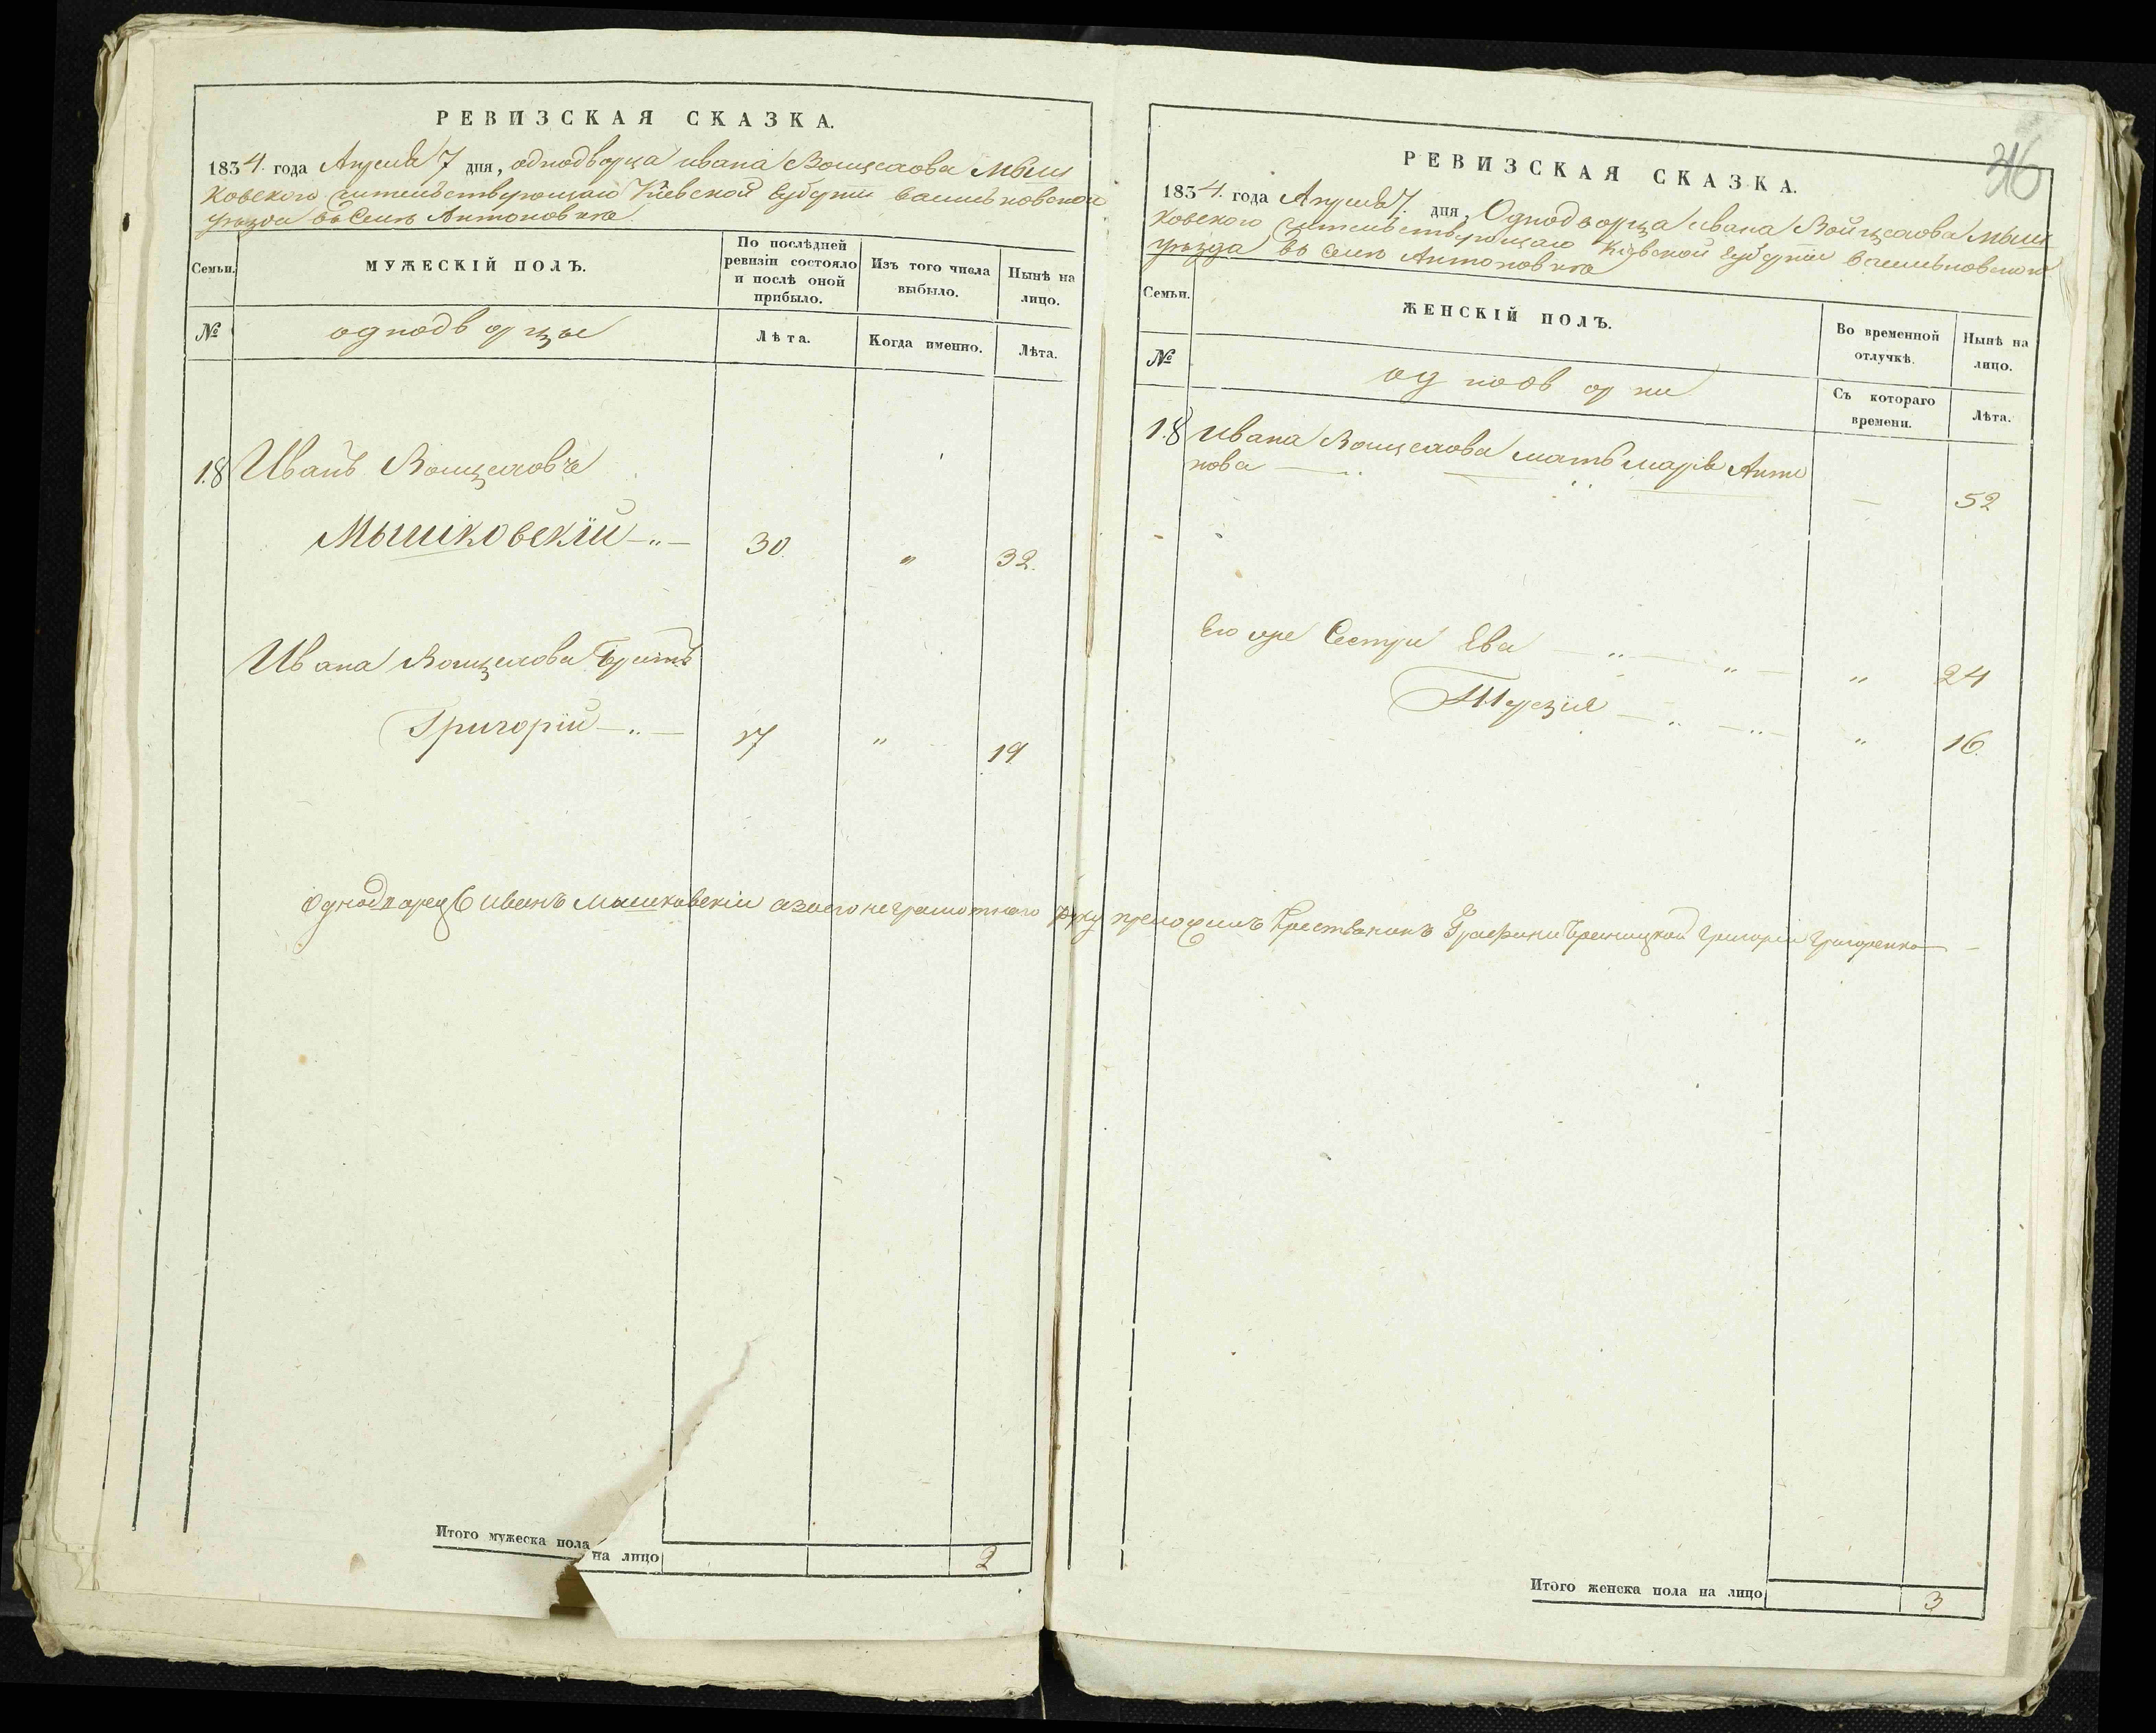 РЕВИЗСКАЯ СКАЗКА.
1834. года Апреля 7 дня, однодворца ивана Войцехова Мыш
ковского жительствующаго Кіевской губерніи васильковского
уезда въ селе Антоновке
Семьи.
МУЖЕСКІЙ ПОЛЪ.
По послѣдней ревизіи состояло и послѣ оной прибыло.
Изъ того числа выбыло.
Нынѣ на лицо.
№
однодворцы
Лѣта.
Когда именно.
Лѣта.
18 Иванъ Войцеховъ
Мышковскій —„— 30 „ 32.
Ивана Войцехова братъ
Григорій —„— 17 „ 19
Однодворецъ Иванъ Мышковскій а за его неграмотного руку приложилъ крестьянинъ Графини Браницкой григорій григоренко
Итого мужеска пола на лицо 2
316
РЕВИЗСКАЯ СКАЗКА.
1834. года Апреля 7. дня, Однодворца ивана Войцехова Мыш
ковского жительствующаго Кіевской губерніи васильковского
уезда въ селе Антоновке
Семьи.
ЖЕНСКІЙ ПОЛЪ.
Во временной отлучкѣ.
Нынѣ на лицо.
№
Съ котораго времени.
Лѣта.
18 ивана Войцехова мать марія Анто
нова — 52
Его же Сестри Ева —„—„— „ 24
Терезия —„—„— „ 16.
Итого женска пола на лицо 3